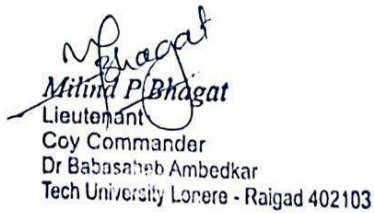 MBhagat
Milind P Bhagat
Lieutenant
Coy Commander
Dr Babasaheb Ambedkar
Tech University Lonere - Raigad 402103